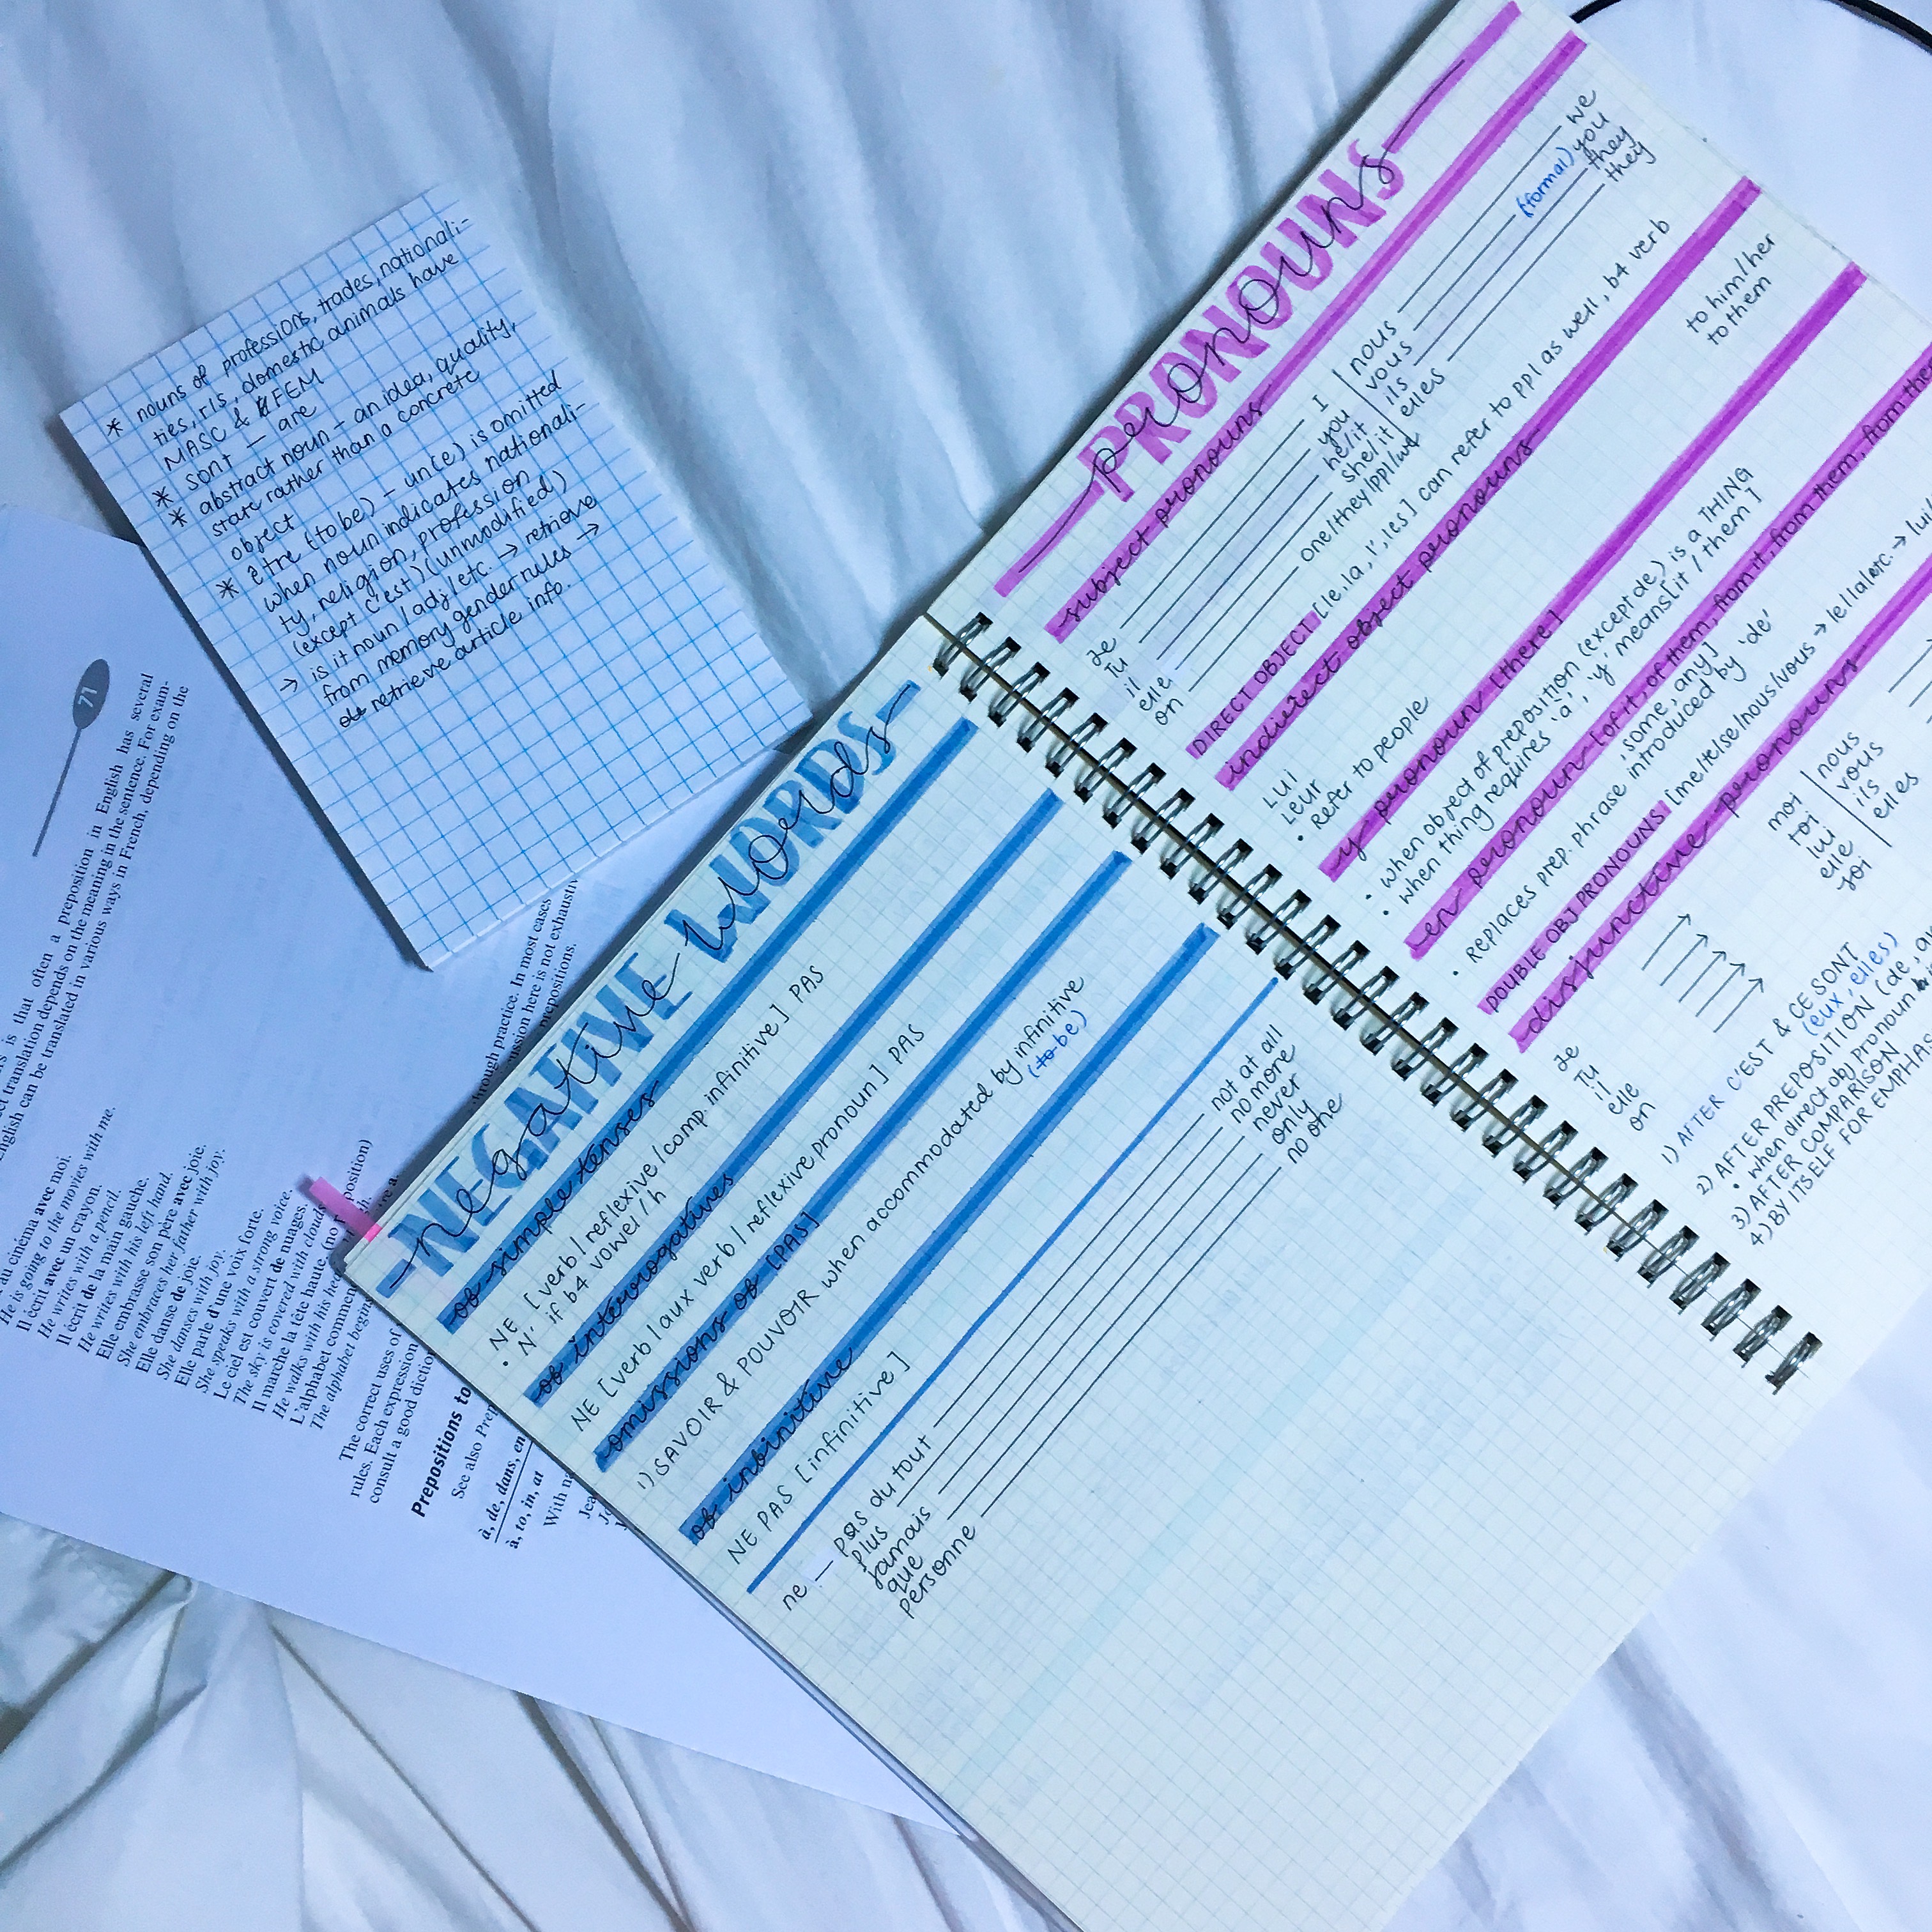 * nouns of professions, trades, nationali-
ties, rls, domestic animals have
MASC & FEM
* sont — are
* abstract noun — an idea, quality,
state rather than a concrete
object
* être (to be) — un(e) is omitted
when noun indicates nationali-
ty, religion, profession
(except c'est) (unmodified)
→ is it noun / adj / etc. → retrieve
from memory gender rules →
retrieve article info.
71
is that often a preposition in English has several
translation depends on the meaning in the sentence. For exam-
English can be translated in various ways in French, depending on the
au cinéma avec moi.
He is going to the movies with me.
Il écrit avec un crayon.
He writes with a pencil.
Il écrit de la main gauche.
He writes with his left hand.
Elle embrasse son père avec joie.
She embraces her father with joy.
Elle danse de joie.
She dances with joy.
Elle parle d'une voix forte.
She speaks with a strong voice.
Le ciel est couvert de nuages.
The sky is covered with clouds
Il marche la tête haute. (no position)
He walks with his
L'alphabet commen
The alphabet begins
The correct uses of
rules. Each expression
consult a good diction
through practice. In most cases
ussion here is not exhaustiv
prepositions.
Prepositions to
See also Prep
à, de, dans, en
à, to, in, at
With na
NEGATIVE WORDS
negative words
of simple tenses
NE [verb / reflexive / comp infinitive] PAS
• N' if b4 vowel / h
of interrogatives
NE [verb / aux verb / reflexive pronoun] PAS
omissions of [PAS]
1) SAVOIR & POUVOIR when accommodated by infinitive
(to be)
of infinitive
NE PAS [infinitive]
ne — pas du tout — not at all
plus — no more
jamais — never
que — only
personne — no one
PRONOUNS
pronouns
subject pronouns
Je — I | nous — we
Tu — you | vous — (formal) you
il — he/it | ils — they
elle — she/it | elles — they
on — one/they/ppl/we
DIRECT OBJECT [le, la, l', les] can refer to ppl as well, b4 verb
indirect object pronouns
LUI to him/her
Leur to them
• Refer to people
y pronoun [there]
• when object of preposition (except de) is a THING
• when thing requires 'à', 'y' means [it / them]
en pronoun [of it, of them, from it, from them, from the
some, any]
• Replaces prep. phrase introduced by 'de'
DOUBLE OBJ PRONOUNS [me/te/se/nous/vous → le/la/etc. → lui/
disjunctive pronouns
Je → moi | nous
Tu → toi | vous
il → lui | ils
elle → elle | elles
on → soi
1) AFTER C'EST & CE SONT
(eux, elles)
2) AFTER PREPOSITION (de,
• when direct obj pronoun
3) AFTER COMPARISON
4) BY ITSELF FOR EMPHAS